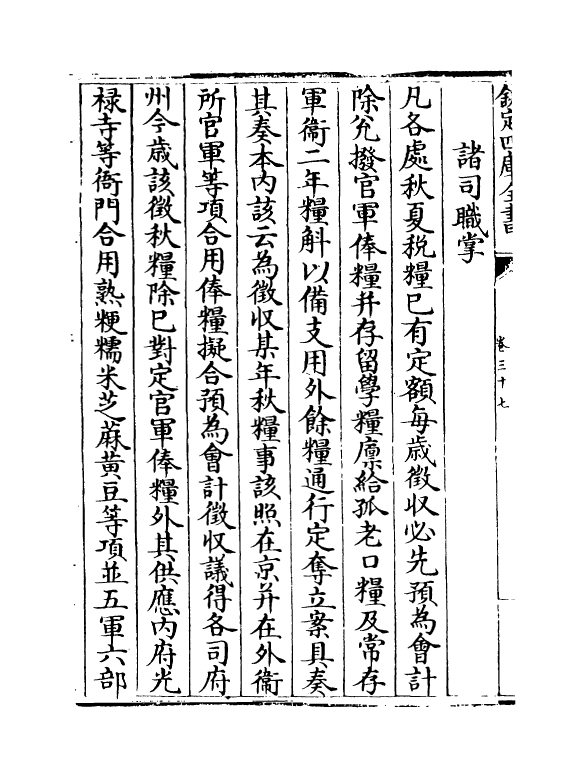 欽定四庫全書
卷三十七
諸司職掌
凡各處秋夏税糧已有定額每歳徵收必先預為會計
除兊撥官軍俸糧并存留學糧廪給孤老口糧及常存
軍衛二年糧斛以備支用外餘糧通行定奪立案具奏
其奏本内該云為徵收某年秋糧事該照在京并在外衛
所官軍等項合用俸糧擬合預為會計徵收議得各司府
州今歳該徵秋糧除已對定官軍俸糧外其供應内府光
禄寺等衙門合用熟粳糯米芝蔴黄豆等項並五軍六部